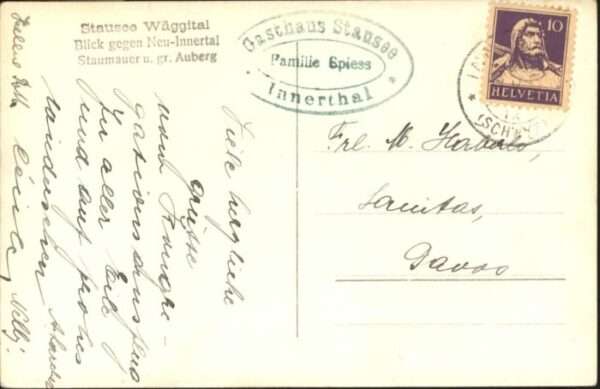 Stausee Wäggital
Blick gegen Neu-Innertal
Staumauer u. gr. Auberg
Gasthaus Stausee
Familie Spiess
Innerthal
10
HELVETIA
(SCHWYZ)
Viele herzliche
Grüsse
vom Kongre-
gationsausflug
In aller Eile
und auf frohes
Cécile
Frl. M.
Sanitas,
Davos